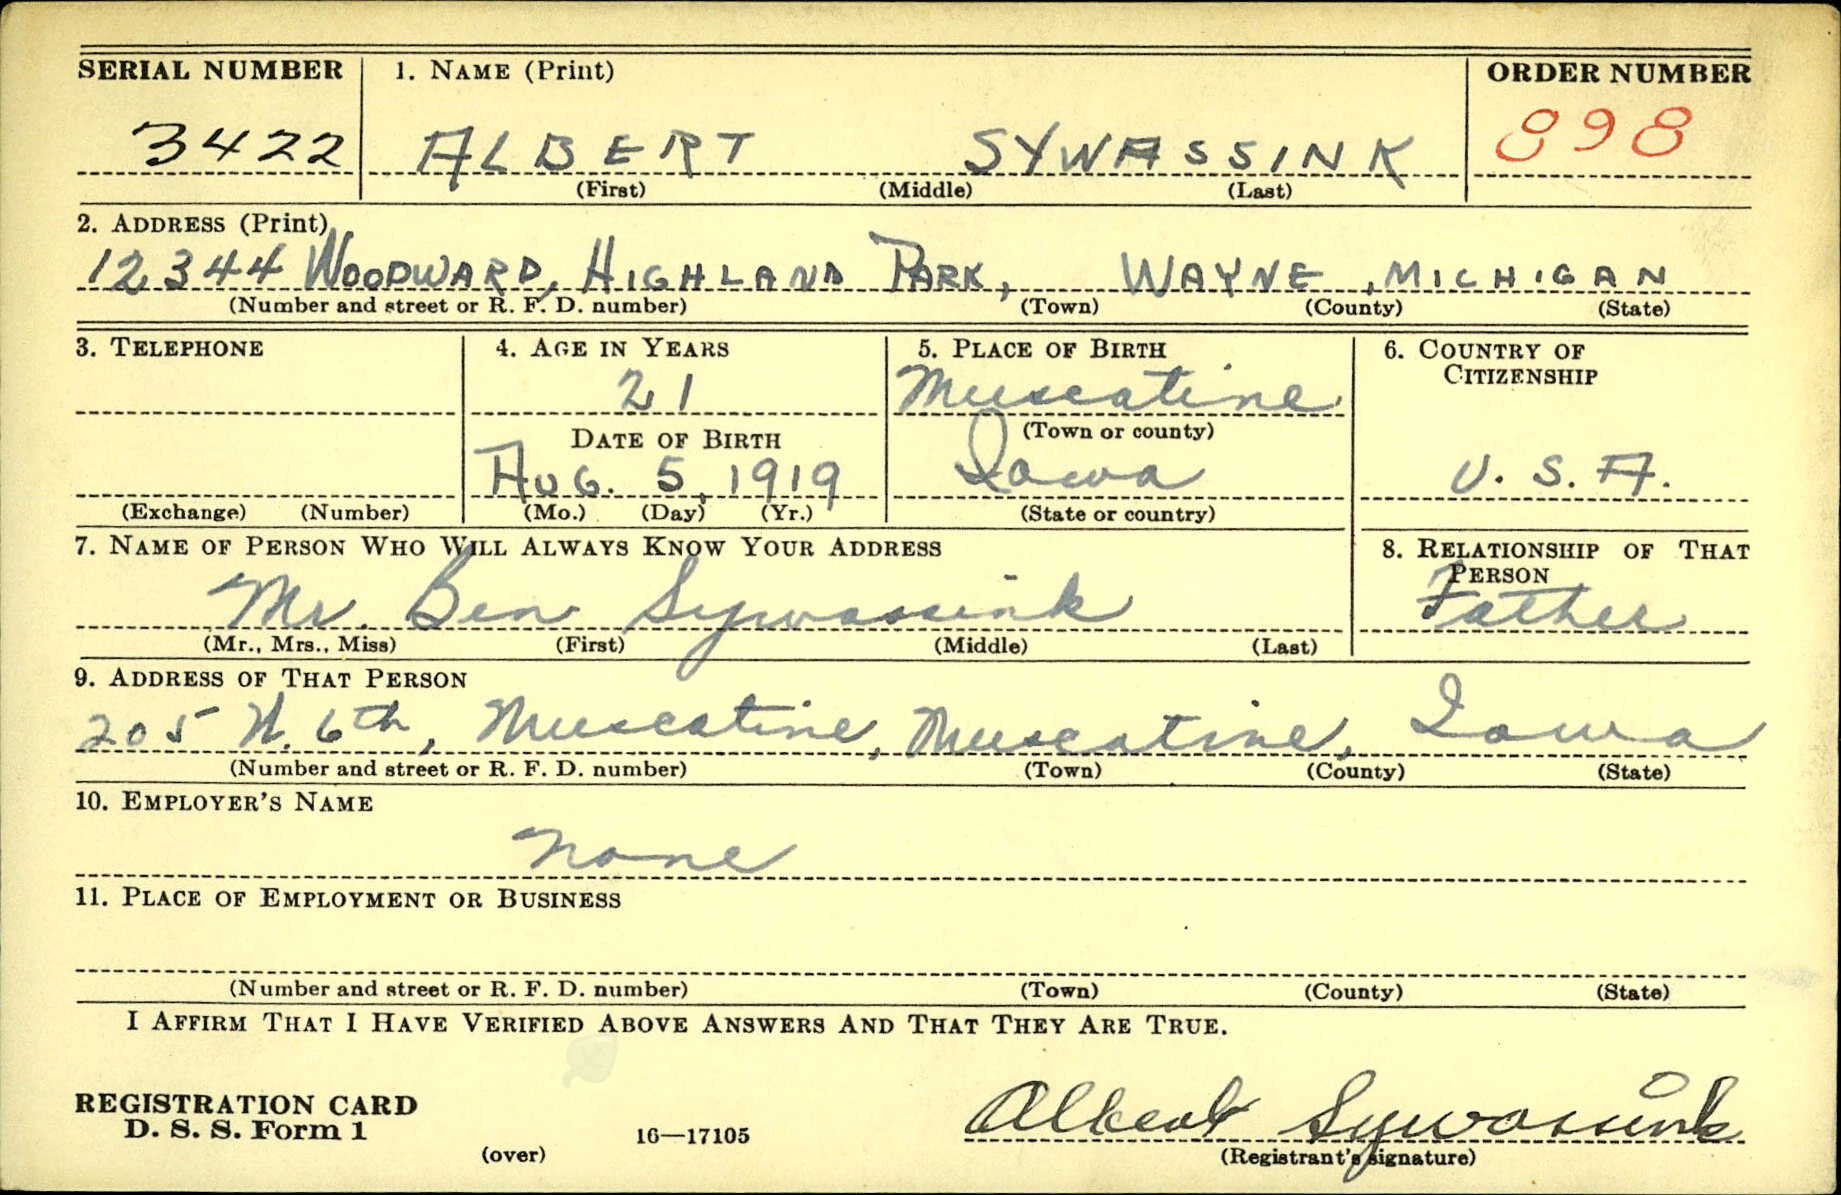 SERIAL NUMBER 1. NAME (Print) ORDER NUMBER
3422 ALBERT SYWASSINK 898
(First) (Middle) (Last)
2. ADDRESS (Print)
12344 WOODWARD, HIGHLAND PARK, WAYNE, MICHIGAN
(Number and street or R. F. D. number) (Town) (County) (State)
3. TELEPHONE 4. AGE IN YEARS 5. PLACE OF BIRTH 6. COUNTRY OF
CITIZENSHIP
21 Muscatine
DATE OF BIRTH (Town or county)
AUG. 5, 1919 Iowa U. S. A.
(Exchange) (Number) (Mo.) (Day) (Yr.) (State or country)
7. NAME OF PERSON WHO WILL ALWAYS KNOW YOUR ADDRESS 8. RELATIONSHIP OF THAT
PERSON
Mr. Ben Sywassink Father
(Mr., Mrs., Miss) (First) (Middle) (Last)
9. ADDRESS OF THAT PERSON
205 W. 6th, Muscatine, Muscatine, Iowa
(Number and street or R. F. D. number) (Town) (County) (State)
10. EMPLOYER'S NAME
None
11. PLACE OF EMPLOYMENT OR BUSINESS
(Number and street or R. F. D. number) (Town) (County) (State)
I AFFIRM THAT I HAVE VERIFIED ABOVE ANSWERS AND THAT THEY ARE TRUE.
REGISTRATION CARD
D. S. S. Form 1 16—17105 Albert Sywassink
(over) (Registrant's signature)